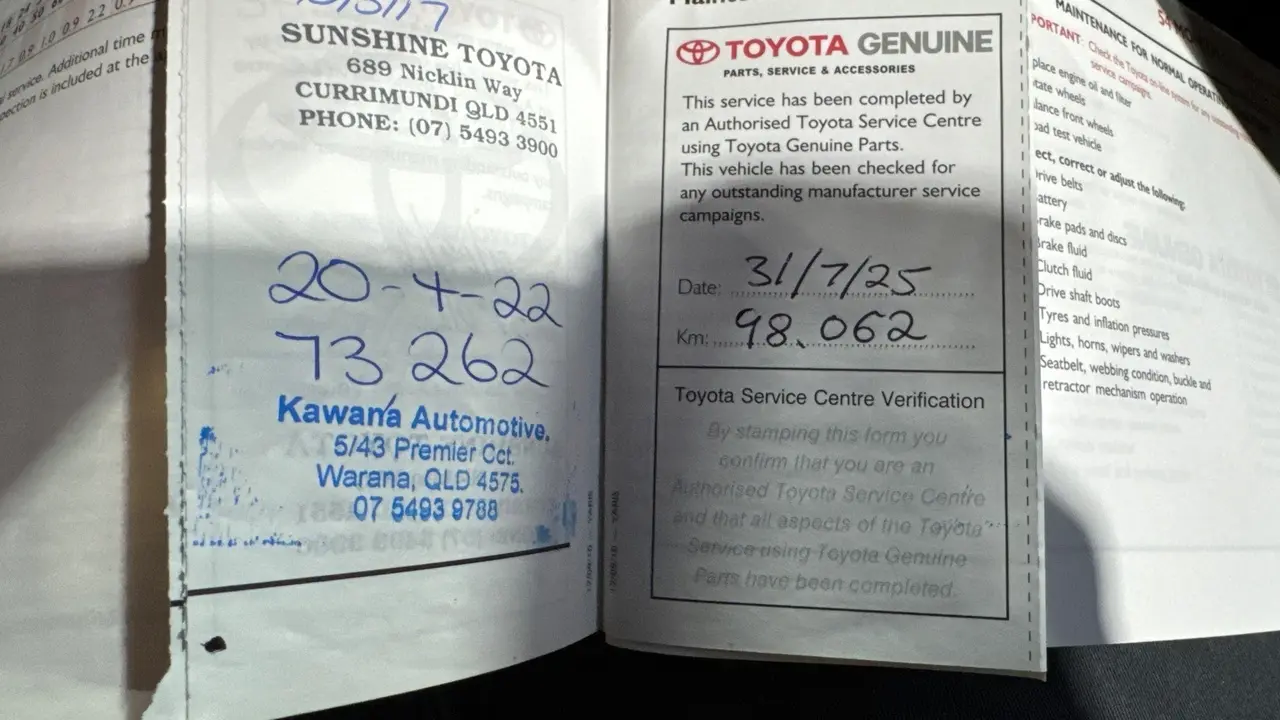 service. Additional time
is included at the
SUNSHINE TOYOTA
689 Nicklin Way
CURRIMUNDI QLD 4551
PHONE: (07) 5493 3900
20-4-22
73 262
Kawana Automotive.
5/43 Premier Cct.
Warana, QLD 4575.
07 5493 9788
TOYOTA GENUINE
PARTS, SERVICE & ACCESSORIES
This service has been completed by
an Authorised Toyota Service Centre
using Toyota Genuine Parts.
This vehicle has been checked for
any outstanding manufacturer service
campaigns.
Date: 31/7/25
Km: 98.062
Toyota Service Centre Verification
By stamping this form you
confirm that you are an
Authorised Toyota Service Centre
and that all aspects of the Toyota
Service using Toyota Genuine
Parts have been completed.
MAINTENANCE FOR NORMAL
PORTANT: Check the Toyota on-line system for any
service campaigns.
place engine oil and filter
tate wheels
lance front wheels
oad test vehicle
ect, correct or adjust the following:
rive belts
attery
rake pads and discs
Brake fluid
Clutch fluid
Drive shaft boots
Tyres and inflation pressures
Lights, horns, wipers and washers
Seatbelt, webbing condition, buckle and
retractor mechanism operation